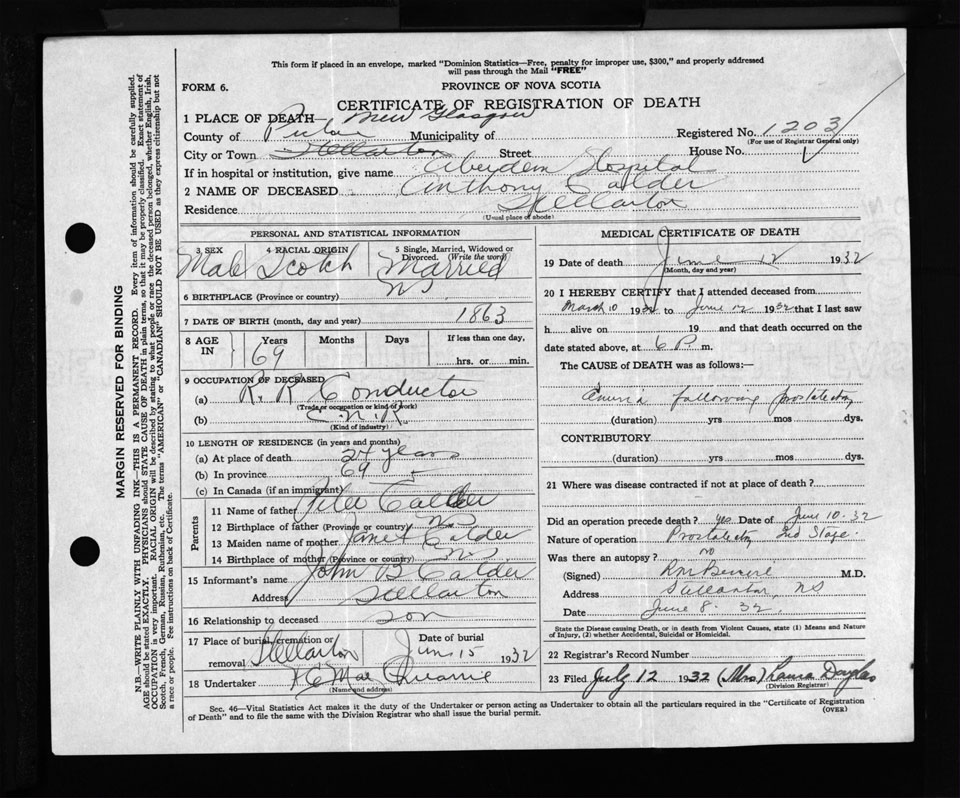 This form if placed in an envelope, marked "Dominion Statistics—Free, penalty for improper use, $300," and properly addressed
will pass through the Mail "FREE"
FORM 6.
PROVINCE OF NOVA SCOTIA
CERTIFICATE OF REGISTRATION OF DEATH
1 PLACE OF DEATH— New Glasgow
County of Pictou Municipality of Registered No. 1203
(For use of Registrar General only)
City or Town Stellarton Street House No.
If in hospital or institution, give name Aberdeen Hospital
2 NAME OF DECEASED Anthony Calder
Residence Stellarton
(Usual place of abode)
PERSONAL AND STATISTICAL INFORMATION
3 SEX 4 RACIAL ORIGIN 5 Single, Married, Widowed or Divorced. (Write the word)
Male Scotch Married
6 BIRTHPLACE (Province or country) NS
7 DATE OF BIRTH (month, day and year) 1863
8 AGE IN Years Months Days If less than one day,
69 hrs. or min.
9 OCCUPATION OF DECEASED
(a) R. R Conductor
(Trade or occupation or kind of work)
(b) C. N. R.
(Kind of industry)
10 LENGTH OF RESIDENCE (in years and months)
(a) At place of death 24 years
(b) In province 69
(c) In Canada (if an immigrant)
Parents
11 Name of father Peter Calder
12 Birthplace of father (Province or country) NS
13 Maiden name of mother Janet Calder
14 Birthplace of mother (Province or country) NS
15 Informant's name John B Calder
Address Stellarton
16 Relationship to deceased son
17 Place of burial, cremation or removal Stellarton Date of burial June 15 1932
18 Undertaker
(Name and address)
MEDICAL CERTIFICATE OF DEATH
19 Date of death June 12 1932
(Month, day and year)
20 I HEREBY CERTIFY that I attended deceased from
March 10 1932 to June 12 1932 that I last saw
h alive on 19 and that death occurred on the
date stated above, at 6 P. m.
The CAUSE of DEATH was as follows:—
following prostatectomy
(duration) yrs mos dys.
CONTRIBUTORY
(duration) yrs mos dys.
21 Where was disease contracted if not at place of death?
Did an operation precede death? yes Date of June 10-32
Nature of operation Prostatectomy 2nd Stage.
Was there an autopsy? no
(Signed) M.D.
Address Stellarton, NS
Date June 8. 32.
State the Disease causing Death, or in death from Violent Causes, state (1) Means and Nature
of Injury, (2) whether Accidental, Suicidal or Homicidal.
22 Registrar's Record Number
23 Filed July 12 1932 (Mrs) Laura Douglas
(Division Registrar)
Sec. 46—Vital Statistics Act makes it the duty of the Undertaker or person acting as Undertaker to obtain all the particulars required in the "Certificate of Registration
of Death" and to file the same with the Division Registrar who shall issue the burial permit.
(OVER)
MARGIN RESERVED FOR BINDING
N.B.—WRITE PLAINLY WITH UNFADING INK—THIS IS A PERMANENT RECORD. Every item of information should be carefully supplied.
AGE should be stated EXACTLY. PHYSICIANS should STATE CAUSE OF DEATH in plain terms, so that it may be properly classified. Exact statement of
OCCUPATION is very important. RACIAL ORIGIN will be described by stating to what people or race the deceased person belonged, whether English, Irish,
Scotch, French, German, Russian, Ruthenian, etc. The terms "AMERICAN" or "CANADIAN" SHOULD NOT BE USED as they express citizenship but not
a race or people. See instructions on back of Certificate.